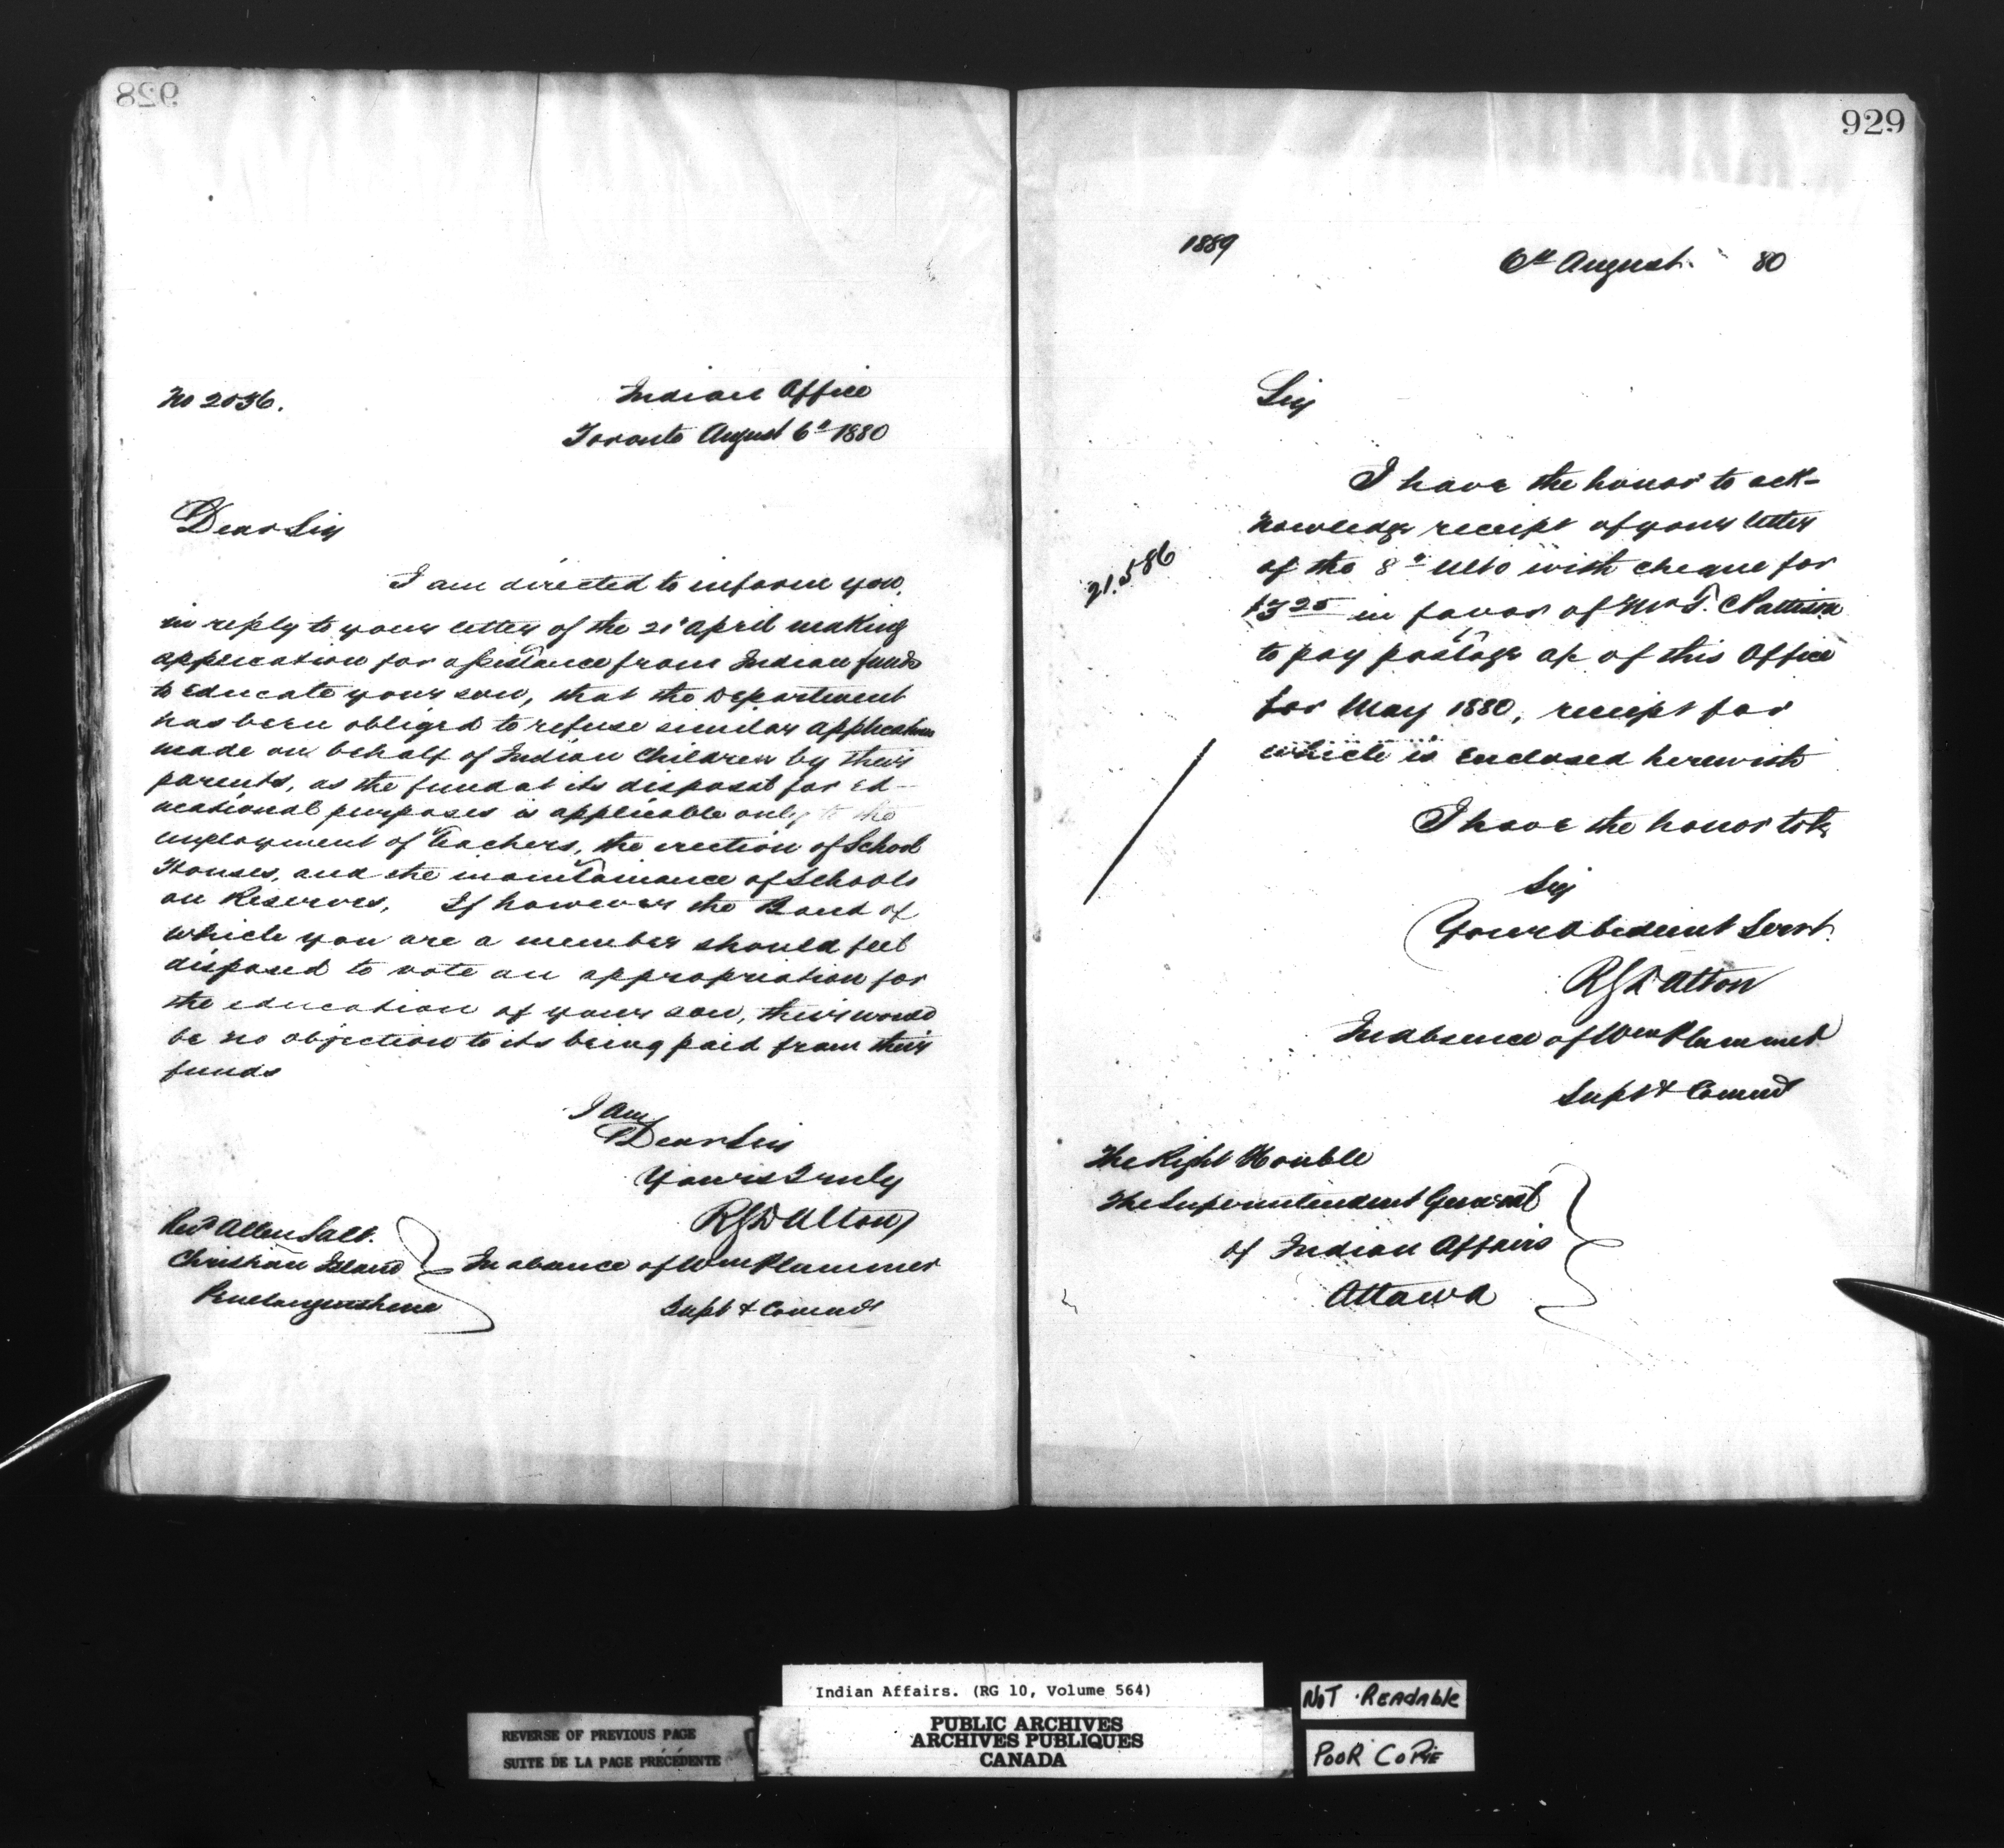 928
No 2036.
Indian Office
Toronto August 6th 1880
Dear Sir
I am directed to inform you,
in reply to your letter of the 21st April making
application for assistance from Indian funds
to educate your son, that the Department
has been obliged to refuse similar applications
made on behalf of Indian Children by their
parents, as the fund at its disposal for ed-
ucational purposes is applicable only to the
employment of Teachers, the erection of School
Houses, and the maintainance of Schools
on Reserves, If however the Band of
which you are a member should feel
disposed to vote an appropriation for
the education of your son, their would
be no objection to its being paid from their
funds
I Am
Dear Sir
Yours Truly
R G Dalton
In absence of Wm Plummer
Supt & Commr
Revd Allen Salt.
Christian Island
Penetanguishene
929
1889
6th August 80
Sir
I have the honor to ack-
nowledge receipt of your letter
of the 8th Ulto with cheque for
21.586
$3 25 in favor of Mr T. C Pattison
to pay postage a/c of this Office
for May 1880, receipt for
which is Enclosed herewith
I have the honor to be
Sir
Your Obedient Servt.
R G Dalton
In absence of Wm Plummer
Supt & Commr
The Right Honble
The Superintendent General
of Indian Affairs
Ottawa
Indian Affairs. (RG 10, Volume 564)
REVERSE OF PREVIOUS PAGE
SUITE DE LA PAGE PRÉCÉDENTE
PUBLIC ARCHIVES
ARCHIVES PUBLIQUES
CANADA
NOT READABLE
POOR COPIE